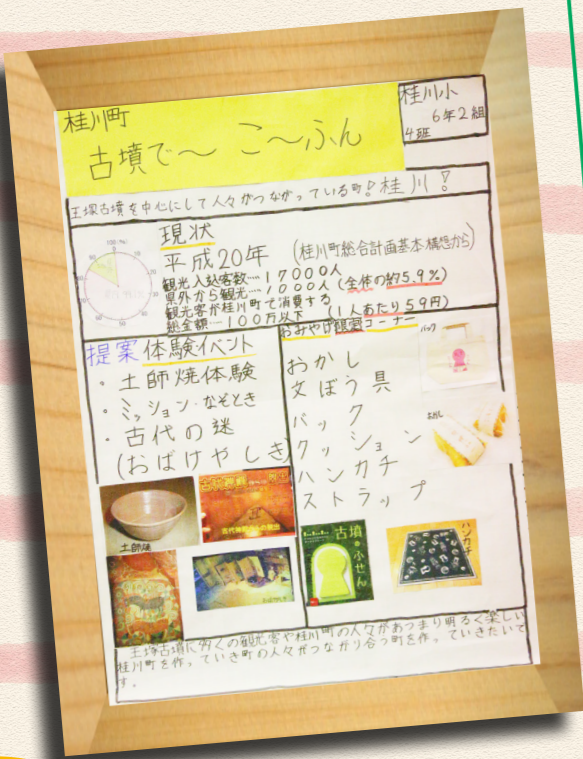 桂川町
古墳で〜 こ〜ふん
桂川小
6年2組
4班
王塚古墳を中心にして人々がつながっている町!桂川!
現状
平成20年 (桂川町総合計画基本構想から)
観光入込客数‥‥17000人
県外から観光‥‥1000人(全体の約5.9%)
観光客が桂川町で消費する
総金額‥‥100万以下 (1人あたり59円)
提案 体験イベント
・土師焼体験
・ミッション・なぞとき
・古代の迷
(おばけやしき)
土師焼
おみやげ限定コーナー
おかし
文ぼう具
バック
クッション
ハンカチ
ストラップ
バック
おかし
古墳
ふせん
ハンカチ
王塚古墳に多くの観光客や桂川町の人々があつまり明るく楽しい
桂川町を作っていき町の人々がつながり合う町を作っていきたいで
す。